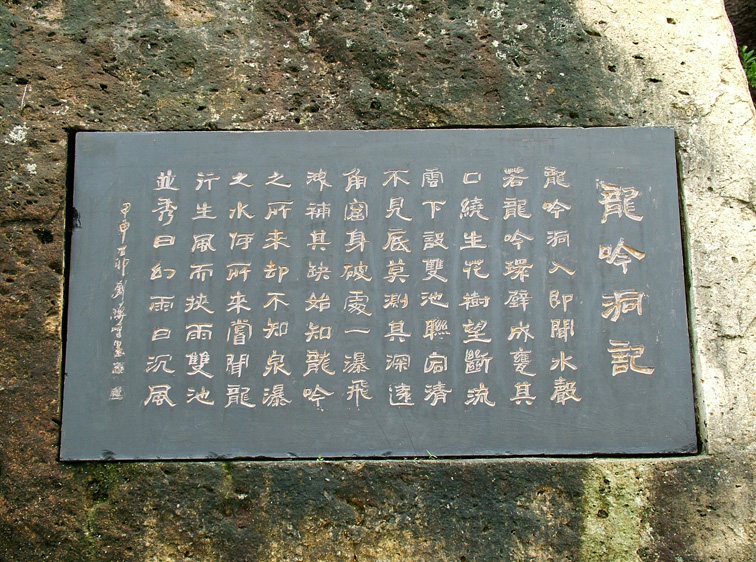 龍吟洞記
龍吟洞入即聞水聲
若龍吟環壁成甕其
口繞生花樹望斷流
雲下設雙池聯清
不見底莫測其深遠
角身破處一瀑飛
沫補其缺始知龍吟
之所来却不知泉瀑
之水何所来嘗聞龍
行生風而挾雨雙池
並秀曰幻雨曰沉風
甲申